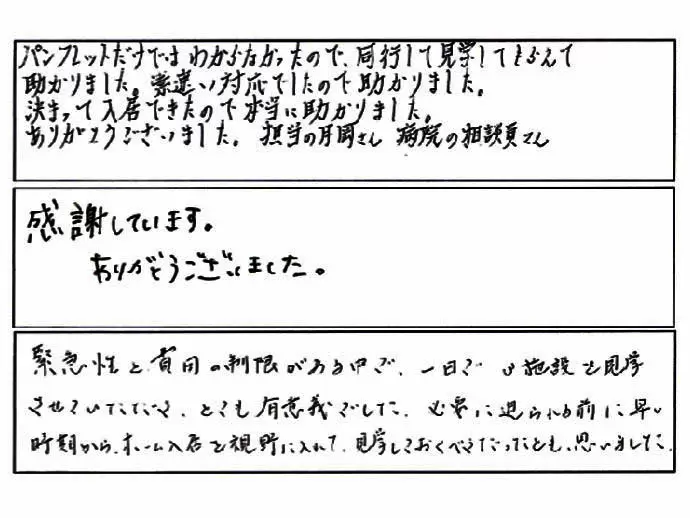 パンフレットだけではわからなかったので、同行して見学してもらえて
助かりました。素速い対応でしたので助かりました。
決まって入居できたので本当に助かりました。
ありがとうございました。担当の月岡さん 病院の相談員さん
感謝しています。
ありがとうございました。
緊急性と費用の制限がある中で、一日で 施設を見学
させていただき、とても有意義でした。必要に迫られる前に早い
時期から、ホーム入居を視野に入れて、見学しておくべきだったとも、思いました。